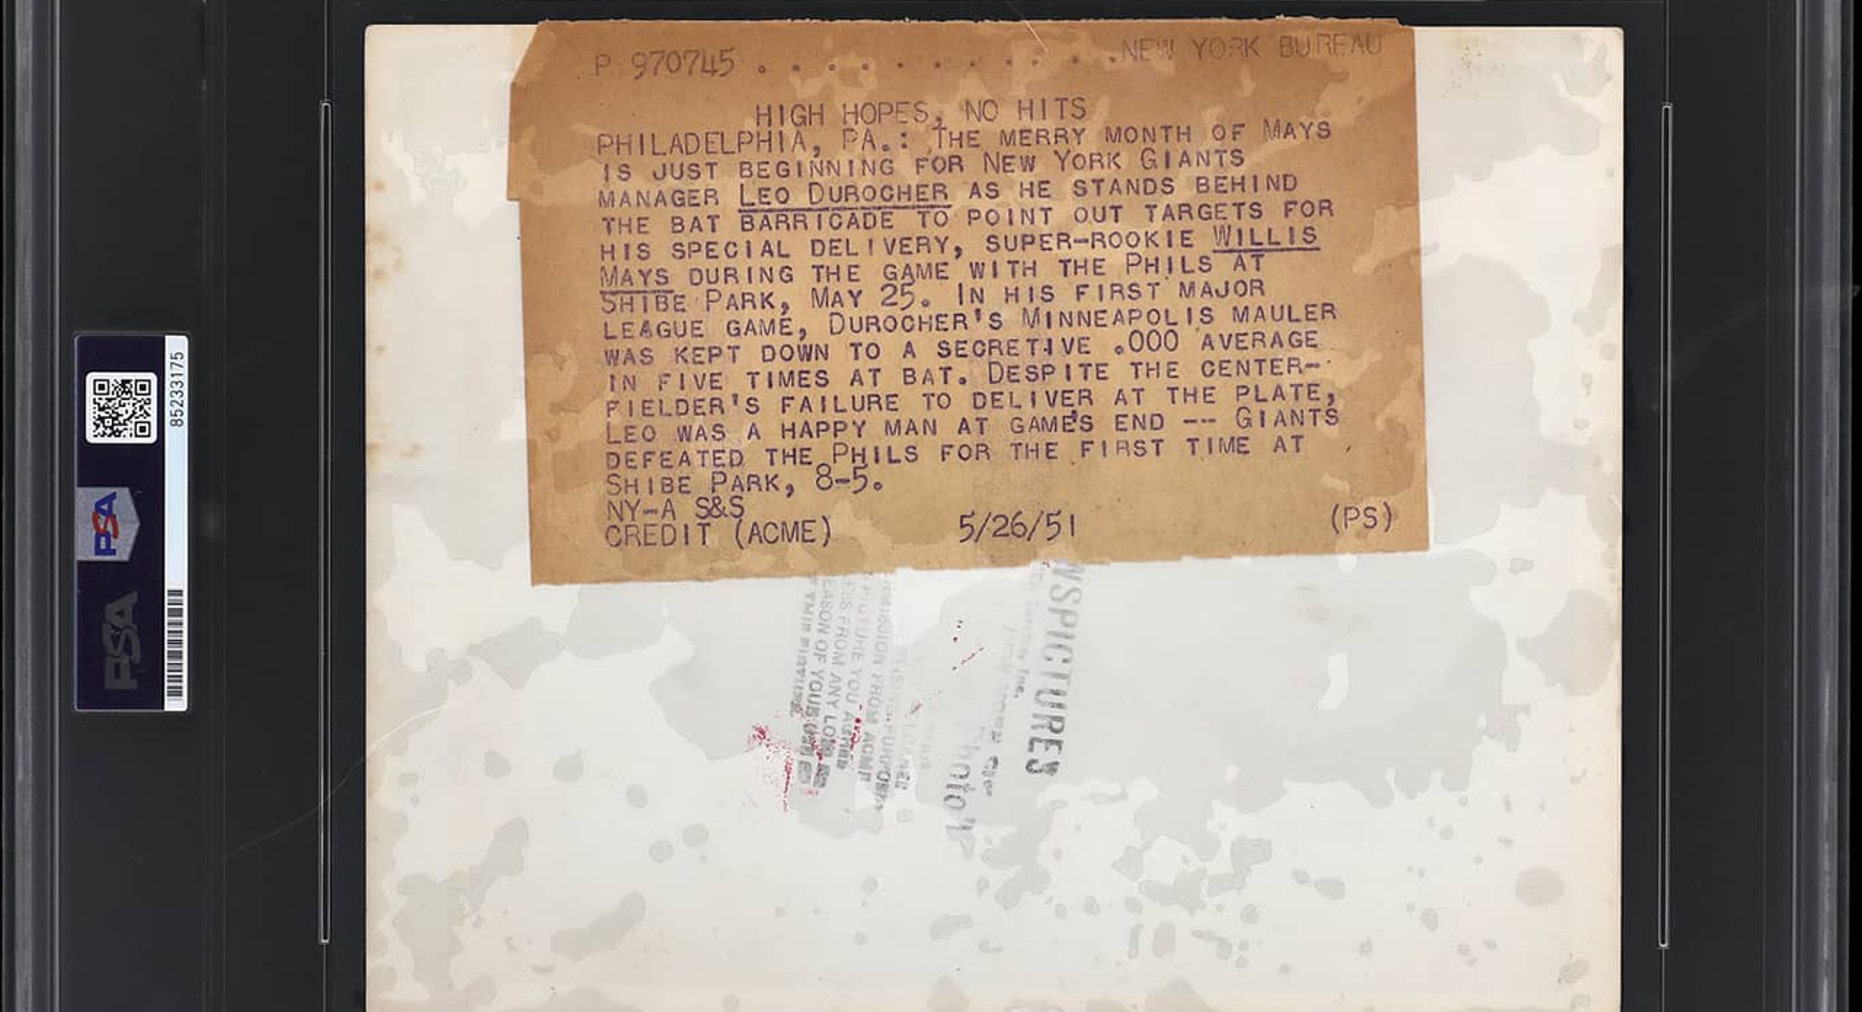 P 970745 . . . . . . . . . . . NEW YORK BUREAU
HIGH HOPES, NO HITS
PHILADELPHIA, PA.: THE MERRY MONTH OF MAYS
IS JUST BEGINNING FOR NEW YORK GIANTS
MANAGER LEO DUROCHER AS HE STANDS BEHIND
THE BAT BARRICADE TO POINT OUT TARGETS FOR
HIS SPECIAL DELIVERY, SUPER-ROOKIE WILLIS
MAYS DURING THE GAME WITH THE PHILS AT
SHIBE PARK, MAY 25. IN HIS FIRST MAJOR
LEAGUE GAME, DUROCHER'S MINNEAPOLIS MAULER
WAS KEPT DOWN TO A SECRETIVE .000 AVERAGE
IN FIVE TIMES AT BAT. DESPITE THE CENTER-
FIELDER'S FAILURE TO DELIVER AT THE PLATE,
LEO WAS A HAPPY MAN AT GAME'S END -- GIANTS
DEFEATED THE PHILS FOR THE FIRST TIME AT
SHIBE PARK, 8-5.
NY-A S&S
CREDIT (ACME) 5/26/51 (PS)
85233175
PSA
PSA
NSPICTURES
Inc.
Photo
FROM ACME
PICTURE YOU AGREE
FROM ANY LOSS
OF YOUR